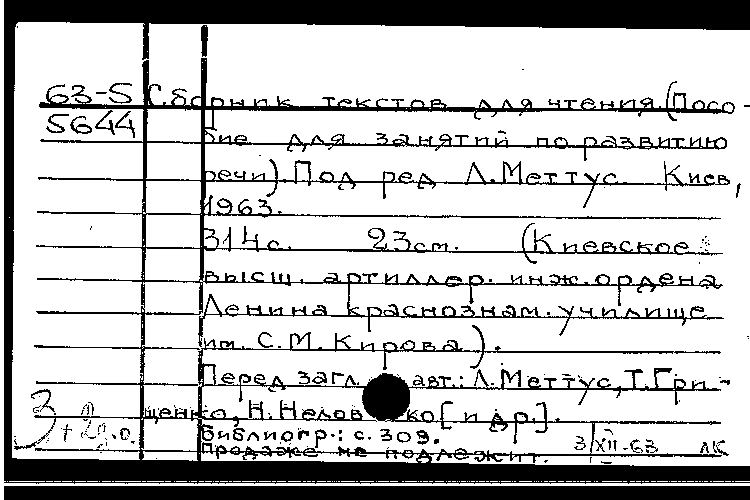 63-5 Сборник текстов для чтения. (Посо-
5644 бие для занятий по развитию
речи). Под ред Л. Меттус. Киев,
1963.
314с. 23см. (Киевское
высш. артиллер. инж. ордена
Ленина краснознам. училище
им. С.М. Кирова).
Перед загл. авт.: Л. Меттус, Т. Гри-
щенко, Н. [и др.].
Библиогр.: с. 309.
Продаже не подлежит. 3/XII-63 ЛК